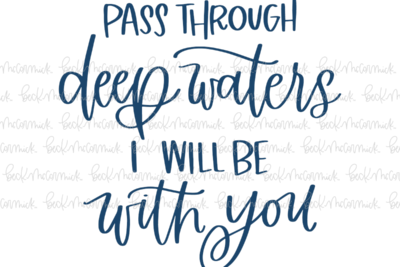 PASS THROUGH
deep waters
i WILL BE
with you